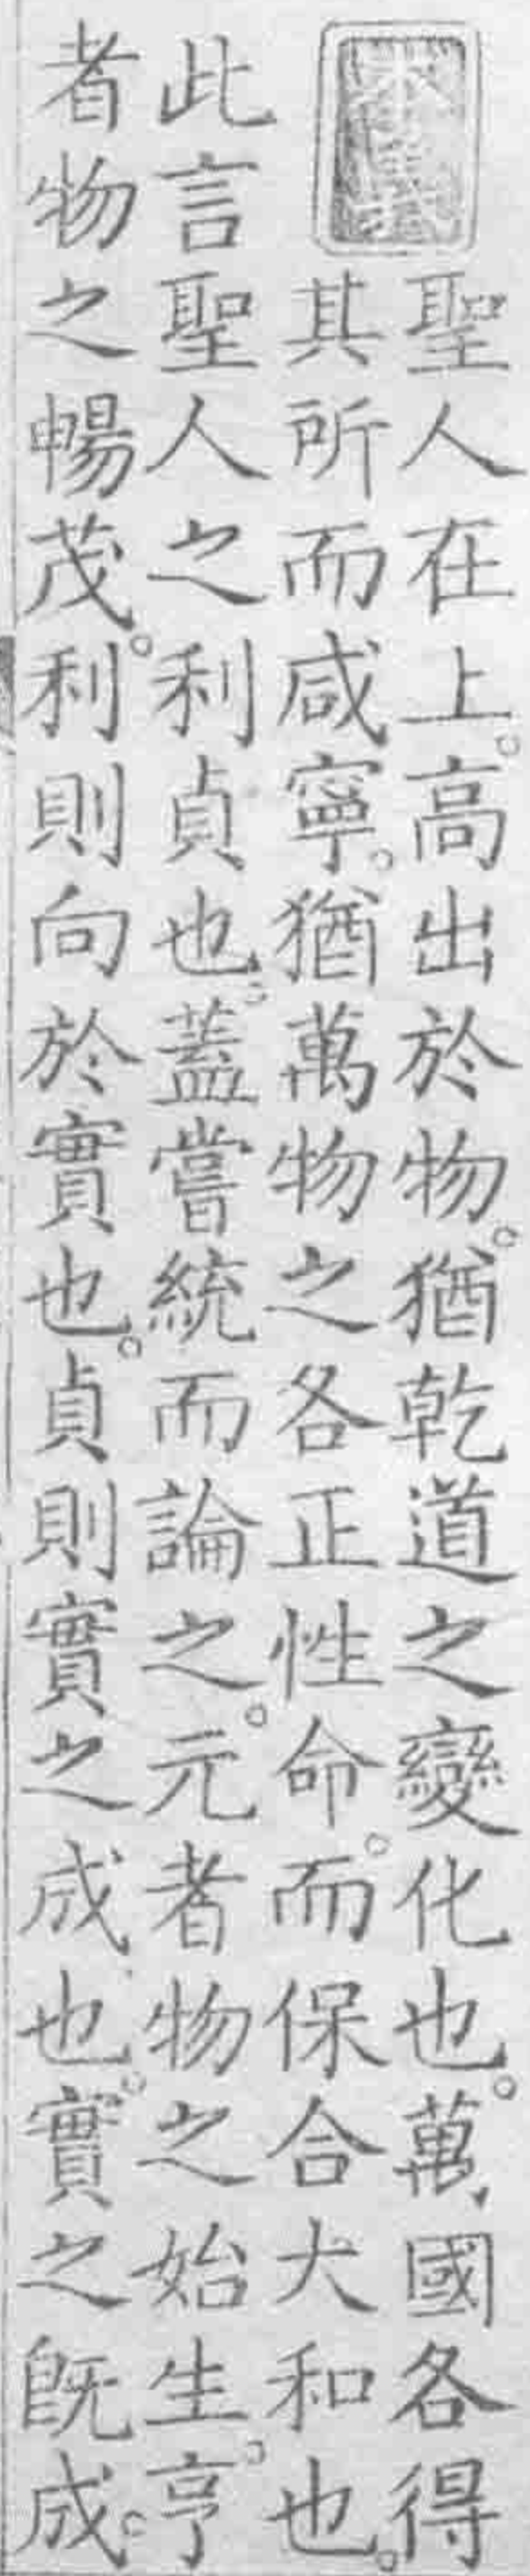 本義
聖人在上。高出於物。猶乾道之變化也。萬國各得
其所而咸寧。猶萬物之各正性命。而保合大和也。
此言聖人之利貞也。蓋嘗統而論之。元者物之始生。亨
者物之暢茂。利則向於實也。貞則實之成也。實之既成。